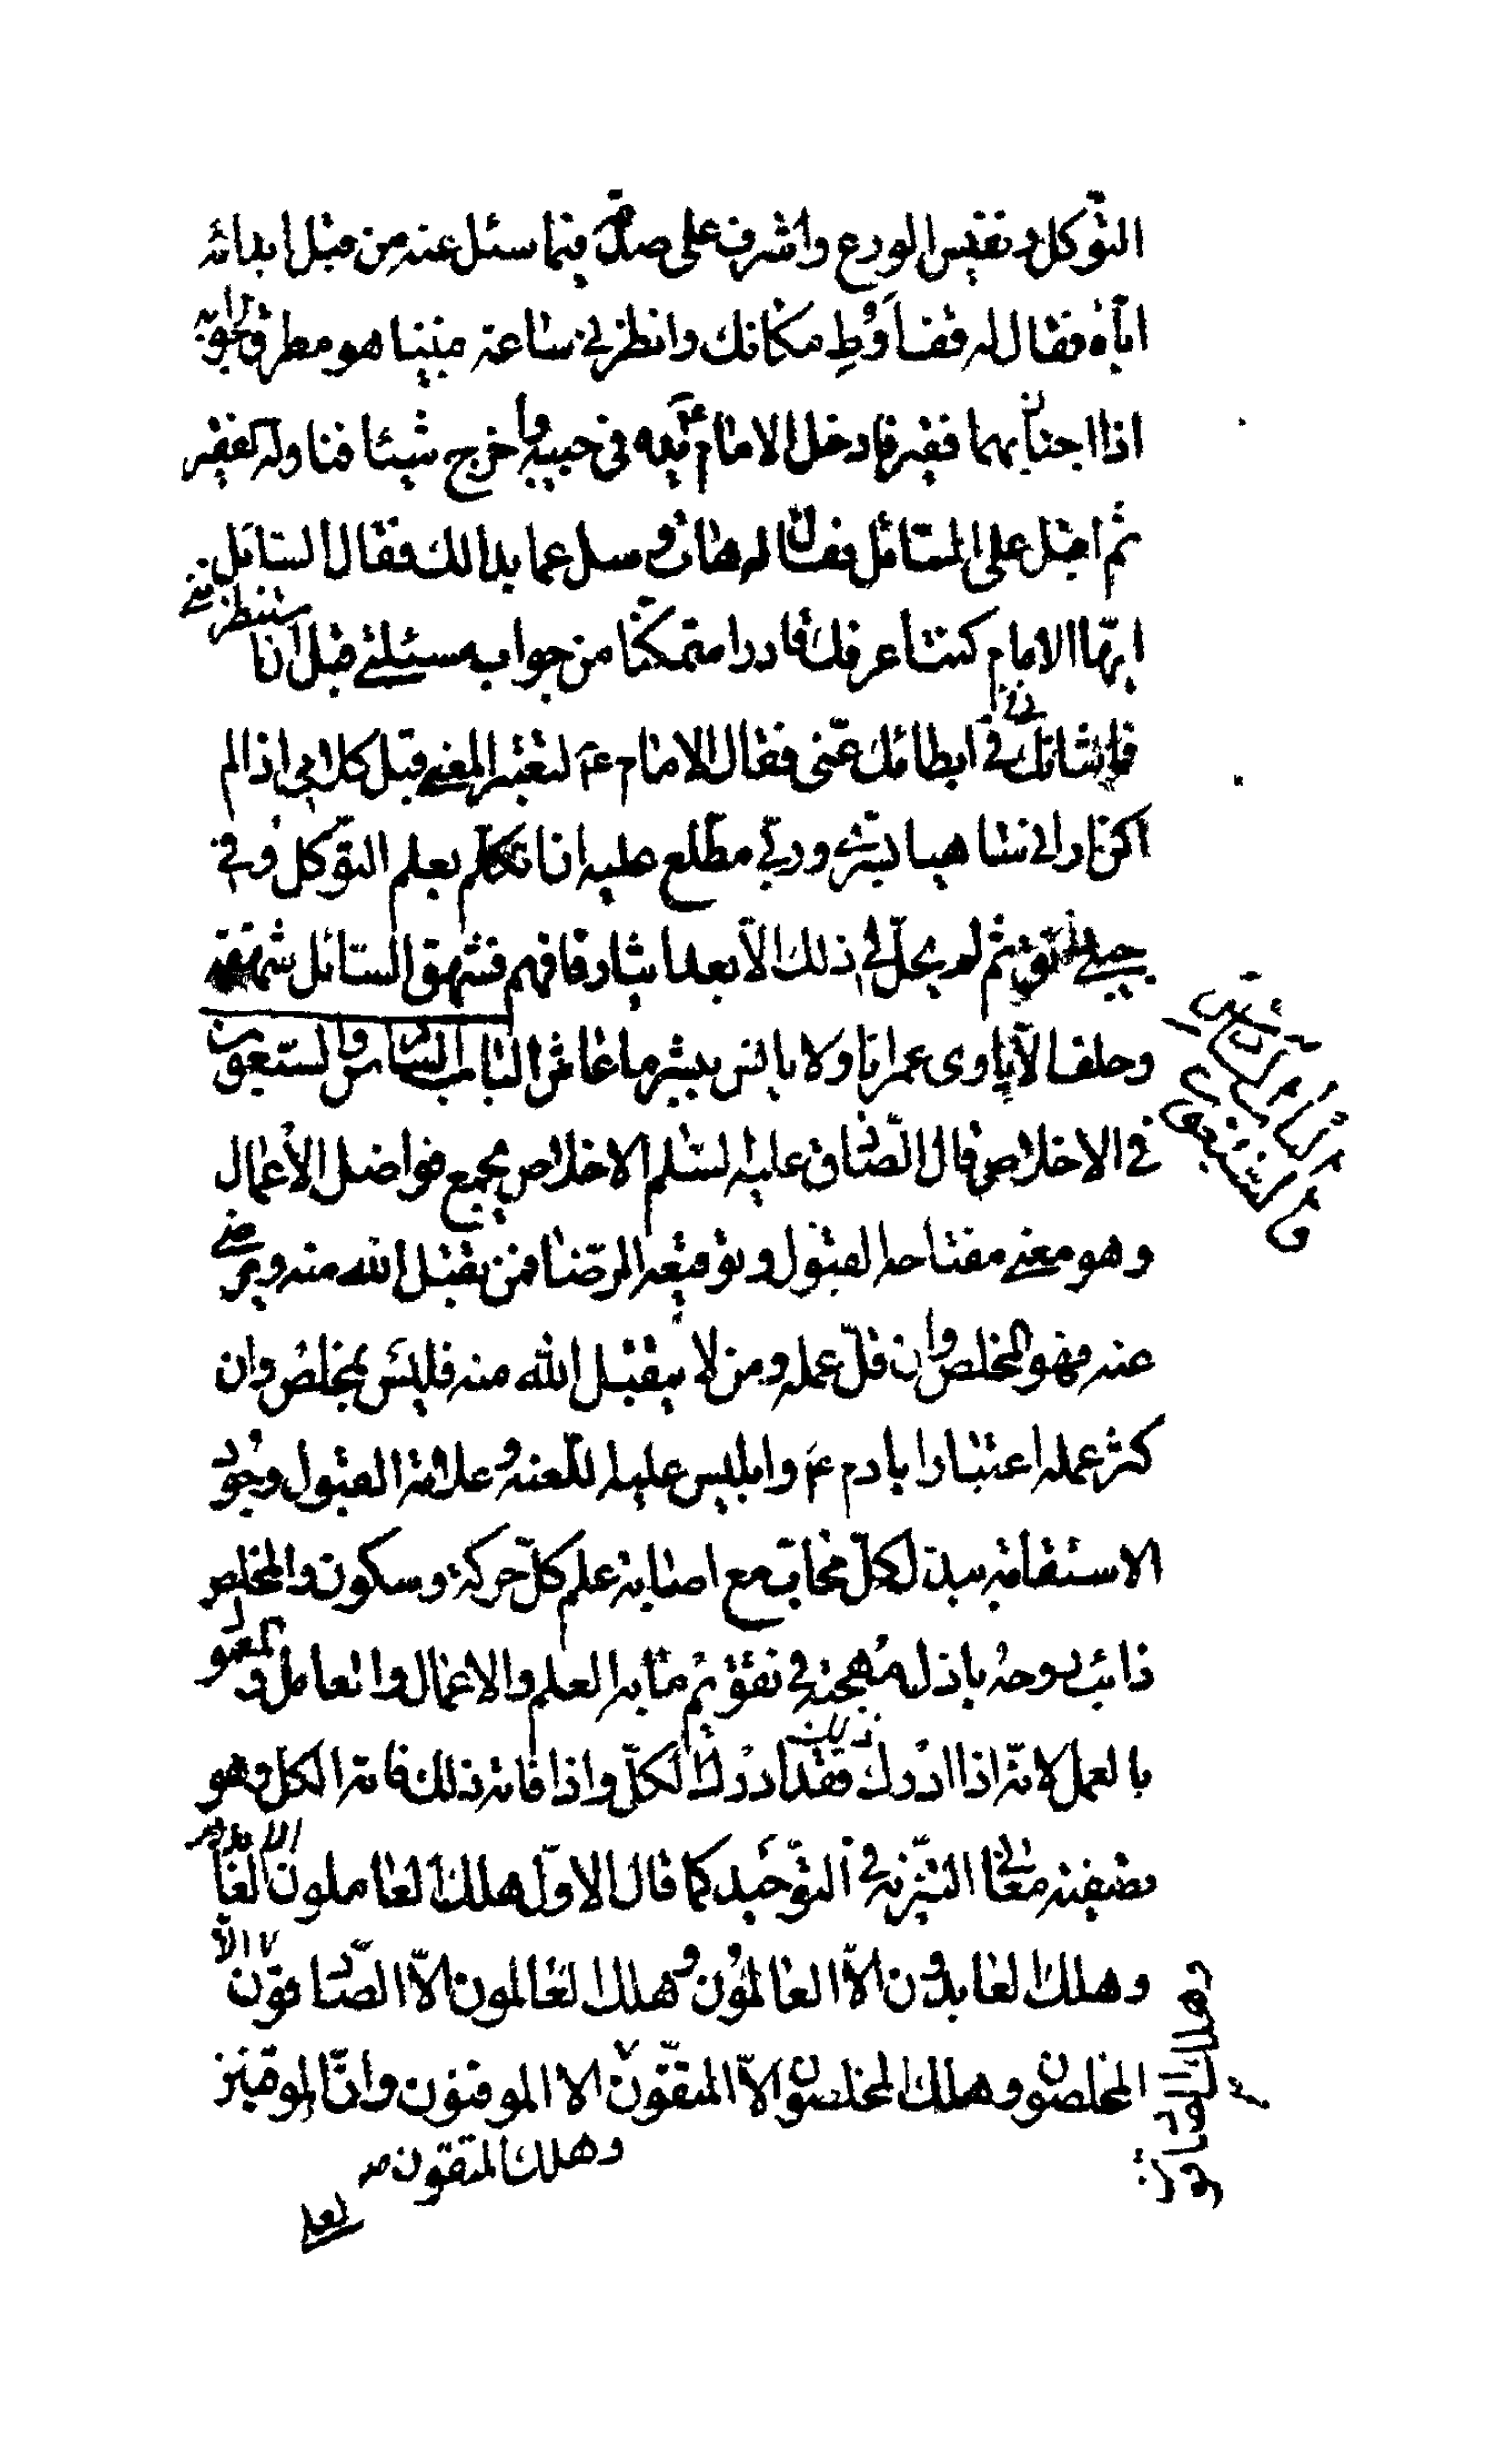 التوكل ونفيس الورع واشرف على صدقه فيما سئل عنه من قبل ابدائه
اياه فقال له قف مكانك وانظرني ساعة فبينا هو مطرق بجوابه
اذا اجتاز بهما فقير فادخل الامام ع يده في جيبه واخرج شيئا فناوله الفقير
ثم اقبل على السائل فقال له هات وسل عما بدا لك فقال السائل
ايها الامام كنت اعرفك قادرا متمكنا من جواب مسئلتي قبل ان تستنظرني
فما شانك في ابطائك عني فقال الامام ع لتعتبر المعنى قبل كلامي اذا لم
اكن اراني ساهيا بسري وربي مطلع عليه ان اتكلم بعلم التوكل وفي
جيبي دانق ثم لم يحل لي ذلك الا بعد ايثاره فافهم فشهق السائل شهقة
وحلف الا ياوي عمرانا ولا يانس ببشر ما عاش الباب السادس والسبعون
في الاخلاص قال الصادق عليه السلم الاخلاص يجمع فواضل الاعمال
وهو معنى مفتاحه القبول وتوقيعه الرضا فمن يقبل الله منه ويرضى
عنه فهو المخلص وان قل عمله ومن لا يتقبل الله منه فليس بمخلص وان
كثر عمله اعتبارا بادم ع وابليس عليه اللعنة وعلامة القبول وجود
الاستقامة ببذل كل محاب مع اصابة علم كل حركة وسكون والمخلص
ذائب روحه باذل مهجته في تقويم ما به العلم والاعمال والعامل والمعمول
بالعمل لانه اذا ادرك ذلك فقد ادرك الكل واذا فاته ذلك فاته الكل وهو
تصفية معاني التنزيه في التوحيد كما قال الاول هلك العاملون الا العابدون
وهلك العابدون الا العالمون وهلك العالمون الا الصادقون
المخلصون وهلك المخلصون الا المتقون الا الموقنون وان الموقنين
وهلك المتقون
لعلى